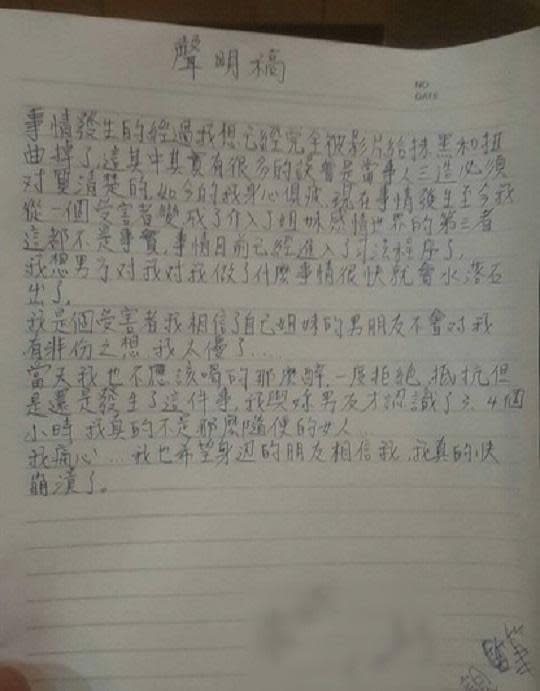 聲明稿
NO.
DATE
事情發生的經過我想已經完全被影片給抹黑和扭
曲掉了,這其中其實有很多的誤會是當事人三造必須
對質清楚的,如今的我身心俱疲,現在事情發生至今我
從一個受害者變成了介入了姐妹感情世界的第三者
這都不是事實,事情目前已經進入了司法程序了,
我想男方對我對我做了什麼事情很快就會水落石
出了,
我是個受害者我相信了自己姐妹的男朋友不會對我
有非份之想,我太傻了....
當天我也不應該喝的那麼醉,一度拒絕,抵抗但
是還是發生了這件事,我與妳男友才認識了3.4個
小時 我真的不是那麼隨便的女人...
我痛心...我也希望身边的朋友相信我,我真的快
崩潰了。